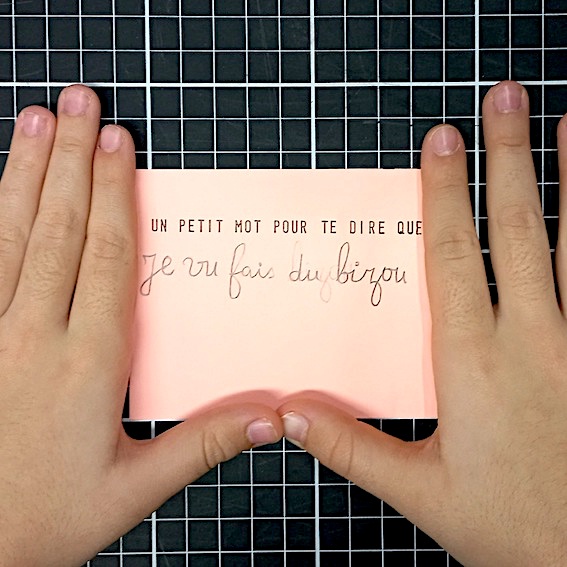 UN PETIT MOT POUR TE DIRE QUE
Je vu fais du bizou